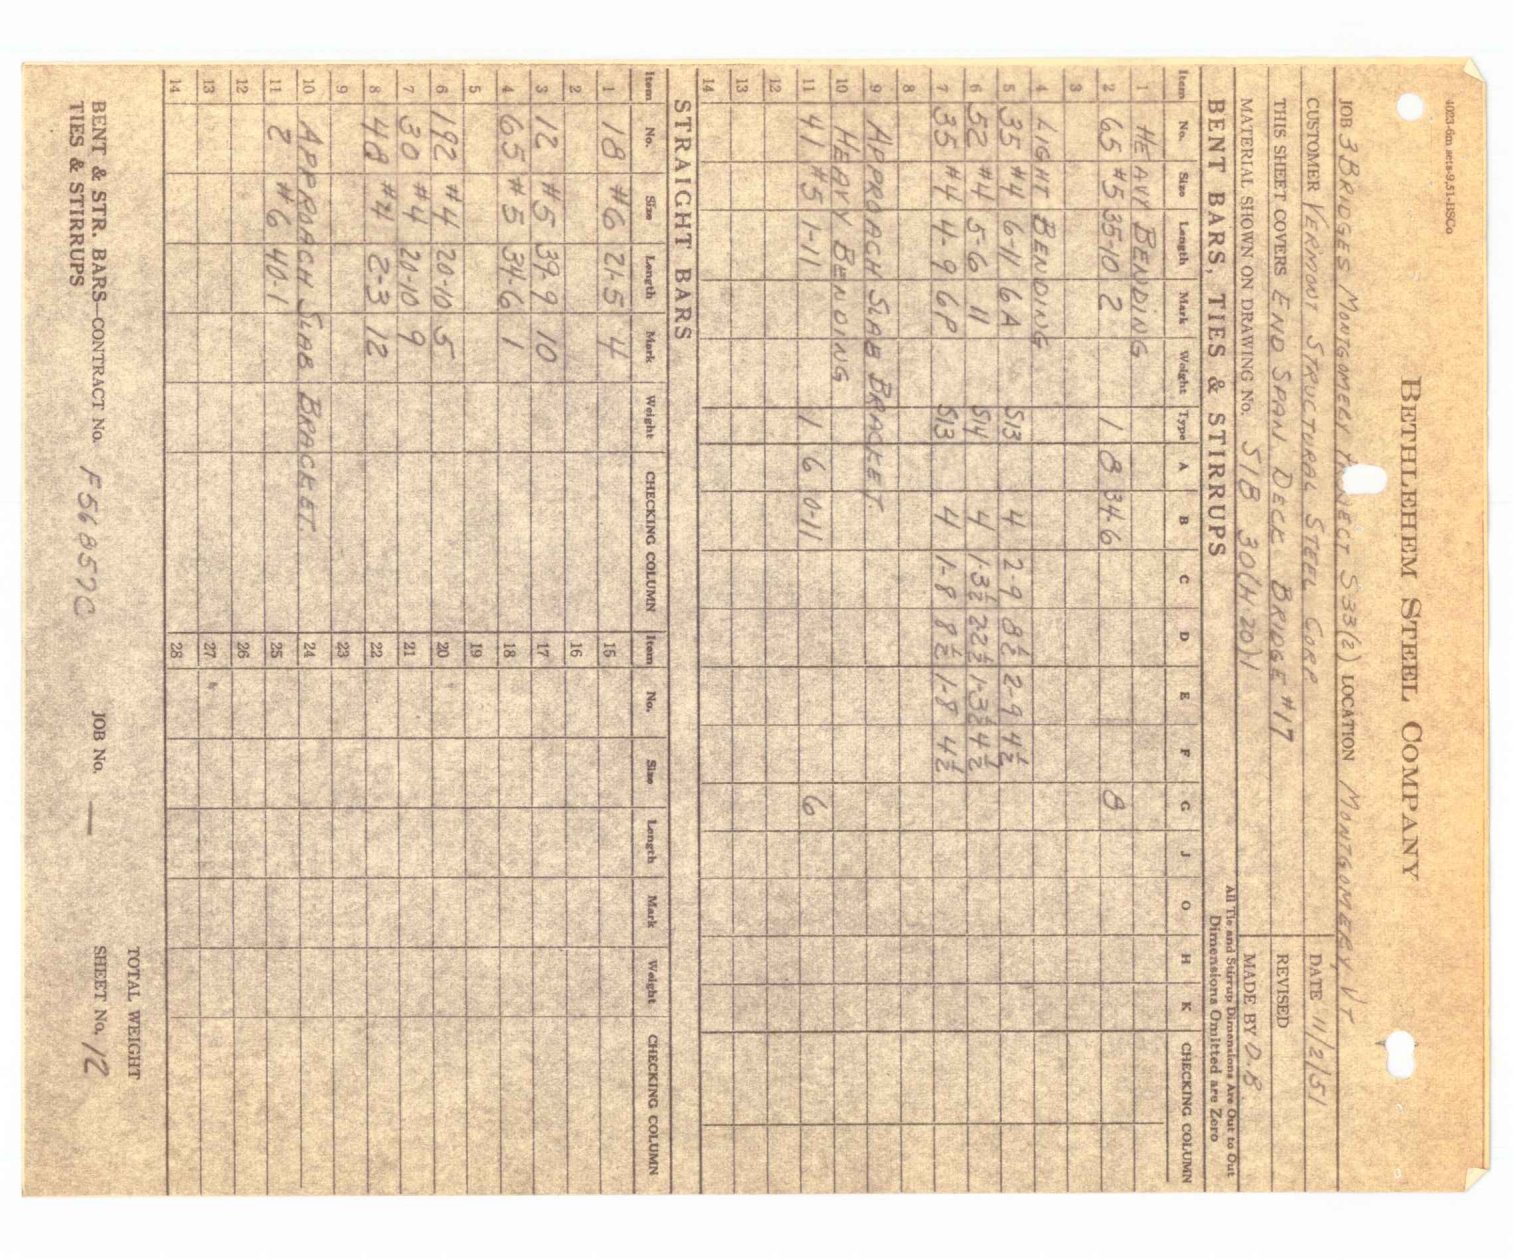 4023-6m sets-9.51-BSCo
BETHLEHEM STEEL COMPANY
JOB 3 BRIDGES MONTGOMERY PROJECT S33(2) LOCATION MONTGOMERY VT
CUSTOMER VERMONT STRUCTURAL STEEL CORP DATE 11/2/51
THIS SHEET COVERS END SPAN DECK BRIDGE #17 REVISED
MATERIAL SHOWN ON DRAWING No. SIB 30(H20)1 MADE BY D.B.
BENT BARS, TIES & STIRRUPS All Tie and Stirrup Dimensions Are Out to Out
Dimensions Omitted are Zero
Item No. Size Length Mark Weight Type A B C D E F G J O H K CHECKING COLUMN
1 HEAVY BENDING
2 65 #5 35-10 2 1 8 34-6 8
3
4 LIGHT BENDING
5 35 #4 6-11 6A 513 4 2-9 8½ 2-9 4½
6 52 #4 5-6 11 514 4 1-3½ 22½ 1-3½ 4½
7 35 #4 4-9 6P 513 4 1-8 8½ 1-8 4½
8
9 APPROACH SLAB BRACKET.
10 HEAVY BENDING
11 41 #5 1-11 1 6 0-11 6
12
13
14
STRAIGHT BARS
Item No. Size Length Mark Weight CHECKING COLUMN Item No. Size Length Mark Weight CHECKING COLUMN
1 18 #6 21-5 4 15
2 16
3 12 #5 39-9 10 17
4 65 #5 34-6 1 18
5 19
6 192 #4 20-10 5 20
7 30 #4 20-10 9 21
8 48 #4 2-3 12 22
9 23
10 APPROACH SLAB BRACKET. 24
11 2 #6 40-1 25
12 26
13 27
14 28
TOTAL WEIGHT
BENT & STR. BARS—CONTRACT No. F56857C JOB No. — SHEET No. 12
TIES & STIRRUPS